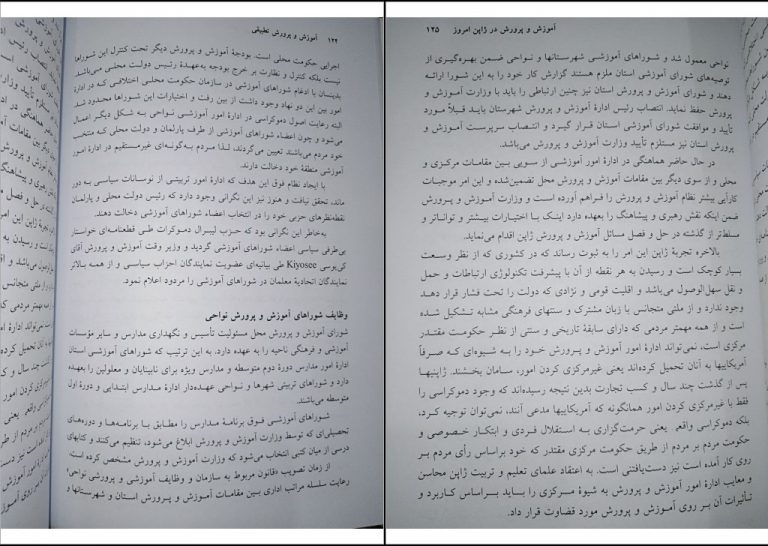 ۱۲۴ آموزش و پرورش تطبیقی
اجرایی حکومت محلی است. بودجهٔ آموزش و پرورش دیگر تحت کنترل این شوراها
نیست بلکه کنترل و نظارت بر خرج بودجه به‌عهدهٔ رئیس دولت محلی می‌باشد.
بدینسان با ادغام شوراهای آموزشی در سازمان حکومت محلی اختلافی که در ادارهٔ
امور بین این دو نهاد وجود داشت از بین رفت و اختیارات این شوراها محدود شد.
البته رعایت اصول دموکراسی در ادارهٔ امور آموزشی نواحی به شکل دیگر اعمال
می‌شود و چون اعضاء شوراهای آموزشی از طرف پارلمان و دولت محلی که منتخب
خود مردم می‌باشند تعیین می‌گردند، لذا مردم به‌گونه‌ای غیرمستقیم در ادارهٔ امور
آموزشی منطقهٔ خود دخالت دارند.
با ایجاد نظام فوق این هدف که ادارهٔ امور تربیتی از نوسانات سیاسی به دور
ماند، تحقق نیافت و هنوز نیز این نگرانی وجود دارد که رئیس دولت محلی و پارلمان
نقطه‌نظرهای حزبی خود را در انتخاب اعضاء شوراهای آموزشی دخالت دهند.
به‌خاطر این نگرانی بود که حزب لیبرال دموکرات طی قطعنامه‌ای خواستار
بی‌طرفی سیاسی اعضاء شوراهای آموزشی گردید و وزیر وقت آموزش و پرورش آقای
کی‌یوسی Kiyosee طی بیانیه‌ای عضویت نمایندگان احزاب سیاسی و از همه بالاتر
نمایندگان اتحادیهٔ معلمان در شوراهای آموزشی را مردود اعلام نمود.
وظایف شوراهای آموزش و پرورش نواحی
شورای آموزش و پرورش محل مسئولیت تأسیس و نگهداری مدارس و سایر مؤسسات
آموزشی و فرهنگی ناحیه را به عهده دارد. به این ترتیب که شوراهای آموزشی استان
ادارهٔ امور مدارس دورهٔ دوم متوسطه و مدارس ویژه برای نابینایان و معلولین را بعهده
دارد و شوراهای تربیتی شهرها و نواحی عهده‌دار ادارهٔ مدارس ابتدایی و دورهٔ اول
متوسطه می‌باشند.
شوراهای آموزشی فوق برنامهٔ مدارس را مطابق با برنامه‌ها و دوره‌های
تحصیلی‌ای که توسط وزارت آموزش و پرورش ابلاغ می‌شود، تنظیم می‌کنند و کتابهای
درسی از میان کتبی انتخاب می‌شود که وزارت آموزش و پرورش مشخص کرده است.
از زمان تصویب «قانون مربوط به سازمان و وظایف آموزشی و پرورشی نواحی»
رعایت سلسله مراتب اداری بین مقامات آموزش و پرورش استان و شهرستانها و
آموزش و پرورش در ژاپن امروز ۱۲۵
نواحی معمول شد و شوراهای آموزشی شهرستانها و نواحی ضمن بهره‌گیری از
توصیه‌های شورای آموزشی استان ملزم هستند گزارش کار خود را به این شورا ارائه
دهند و شورای آموزش و پرورش استان نیز چنین ارتباطی را باید با وزارت آموزش و
پرورش حفظ نماید. انتصاب رئیس ادارهٔ آموزش و پرورش شهرستان باید قبلاً مورد
تأیید و موافقت شورای آموزشی استان قرار گیرد و انتصاب سرپرست آموزش و
پرورش استان نیز مستلزم تأیید وزارت آموزش و پرورش می‌باشد.
در حال حاضر هماهنگی در ادارهٔ امور آموزشی از سویی بین مقامات مرکزی و
محلی و از سوی دیگر بین مقامات آموزش و پرورش محل تضمین‌شده و این امر موجبات
کارآیی بیشتر نظام آموزش و پرورش را فراهم آورده است و وزارت آموزش و پرورش
ضمن اینکه نقش رهبری و پیشاهنگ را بعهده دارد اینک با اختیارات بیشتر و تواناتر و
مسلط‌تر از گذشته در حل و فصل مسائل آموزش و پرورش ژاپن اقدام می‌نماید.
بالاخره تجربهٔ ژاپن این امر را به ثبوت رساند که در کشوری که از نظر وسعت
بسیار کوچک است و رسیدن به هر نقطه از آن با پیشرفت تکنولوژی ارتباطات و حمل
و نقل سهل‌الوصول می‌باشد و اقلیت قومی و نژادی که دولت را تحت فشار قرار دهد
وجود ندارد و از ملتی متجانس با زبان مشترک و سنتهای فرهنگی مشابه تشکیل شده
است و از همه مهمتر مردمی که دارای سابقهٔ تاریخی و سنتی از نظر حکومت مقتدر
مرکزی است، نمی‌تواند ادارهٔ امور آموزش و پرورش خود را به شیوه‌ای که صرفاً
آمریکاییها به آنان تحمیل کرده‌اند یعنی غیرمرکزی کردن امور، سامان بخشند. ژاپنیها
پس از گذشت چند سال و کسب تجارت بدین نتیجه رسیده‌اند که وجود دموکراسی را
فقط با غیرمرکزی کردن امور همانگونه که آمریکاییها مدعی آنند، نمی‌توان توجیه کرد،
بلکه دموکراسی واقعی یعنی حرمت‌گزاری به استقلال فردی و ابتکار خصوصی و
حکومت مردم بر مردم از طریق حکومت مرکزی مقتدر که خود براساس رأی مردم بر
روی کار آمده است نیز دست‌یافتنی است. به اعتقاد علمای تعلیم و تربیت ژاپن محاسن
و معایب ادارهٔ امور آموزش و پرورش به شیوهٔ مرکزی را باید براساس کاربرد و
تأثیرات آن بر روی آموزش و پرورش مورد قضاوت قرار داد.